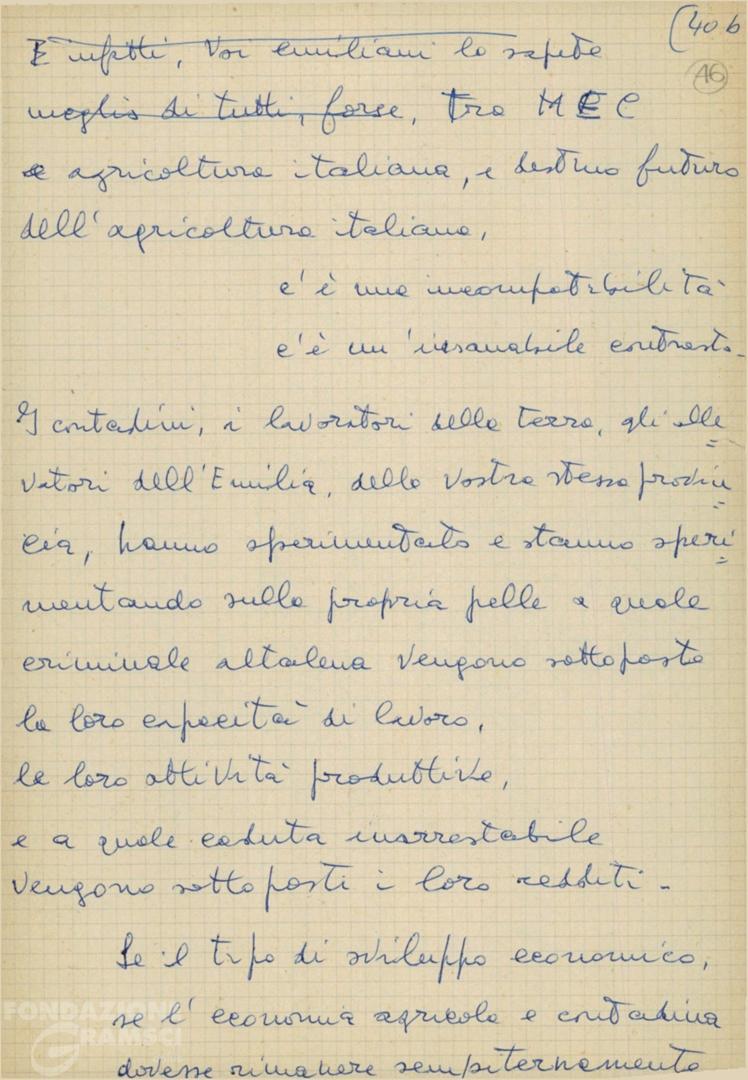 (40 b
46
E infatti, Voi emiliani lo sapete
meglio di tutti, forse, tra MEC
e agricoltura italiana, e destino futuro
dell'agricoltura italiana,
c'è una incompatibilità
c'è un'insanabile contrasto.
I contadini, i lavoratori della terra, gli alle=
vatori dell'Emilia, della vostra stessa provin=
cia, hanno sperimentato e stanno speri=
mentando sulla propria pelle a quale
criminale altalena vengono sottoposte
la loro capacità di lavoro,
le loro attività produttive,
e a quale caduta inarrestabile
vengono sottoposti i loro redditi -
Se il tipo di sviluppo economico,
se l'economia agricola e contadina
dovesse rimanere sempiternamente
FONDAZIONE
GRAMSCI